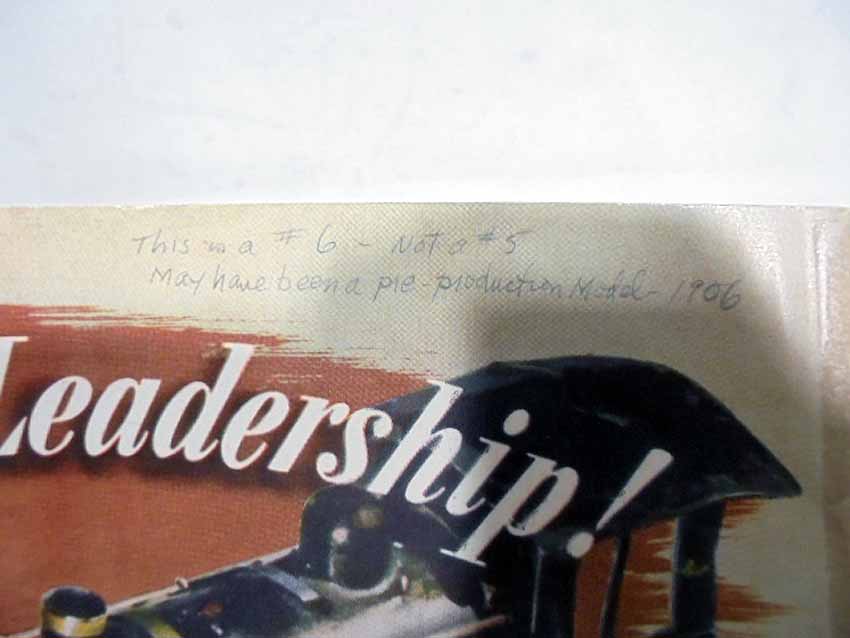 This is a # 6 - Not a # 5
May have been a pre-production Model - 1906
Leadership!